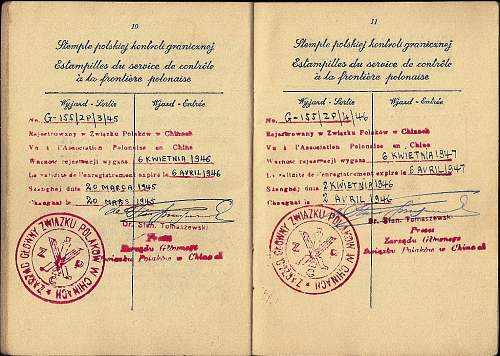 10
Stemple polskiej kontroli granicznej
Estampilles du service de contrôle
à la frontière polonaise
Wyjazd - Sortie
Wjazd - Entrée
No. G-155/ZP/3/45
Rejestrowany w Związku Polaków w Chinach
Vu à l'Association Polonaise en China
Ważność rejestracji wygasa 6 KWIETNIA 1946
La validité de l'enregistrement expire le 6 AVRIL 1946
Szanghaj dnia 20 MARCA 1945
Changhai le 20 MARS 1945
Dr. Stan. Tomaszewski
Prezes
Zarządu Głównego
Związku Polaków w Chinach
ZARZĄD GŁÓWNY ZWIĄZKU POLAKÓW W CHINACH
11
Stemple polskiej kontroli granicznej
Estampilles du service de contrôle
à la frontière polonaise
Wyjazd - Sortie
Wjazd - Entrée
No. G-155/ZP/4/46
Rejestrowany w Związku Polaków w Chinach
Vu à l'Association Polonaise en China
Ważność rejestracji wygasa 6 KWIETNIA 1947
La validité de l'enregistrement expire le 6 AVRIL 1947
Szanghaj dnia 2 KWIETNIA 1946
Changhai le 2 AVRIL 1946
Dr. Stan. Tomaszewski
Prezes
Zarządu Głównego
Związku Polaków w Chinach
ZARZĄD GŁÓWNY ZWIĄZKU POLAKÓW W CHINACH